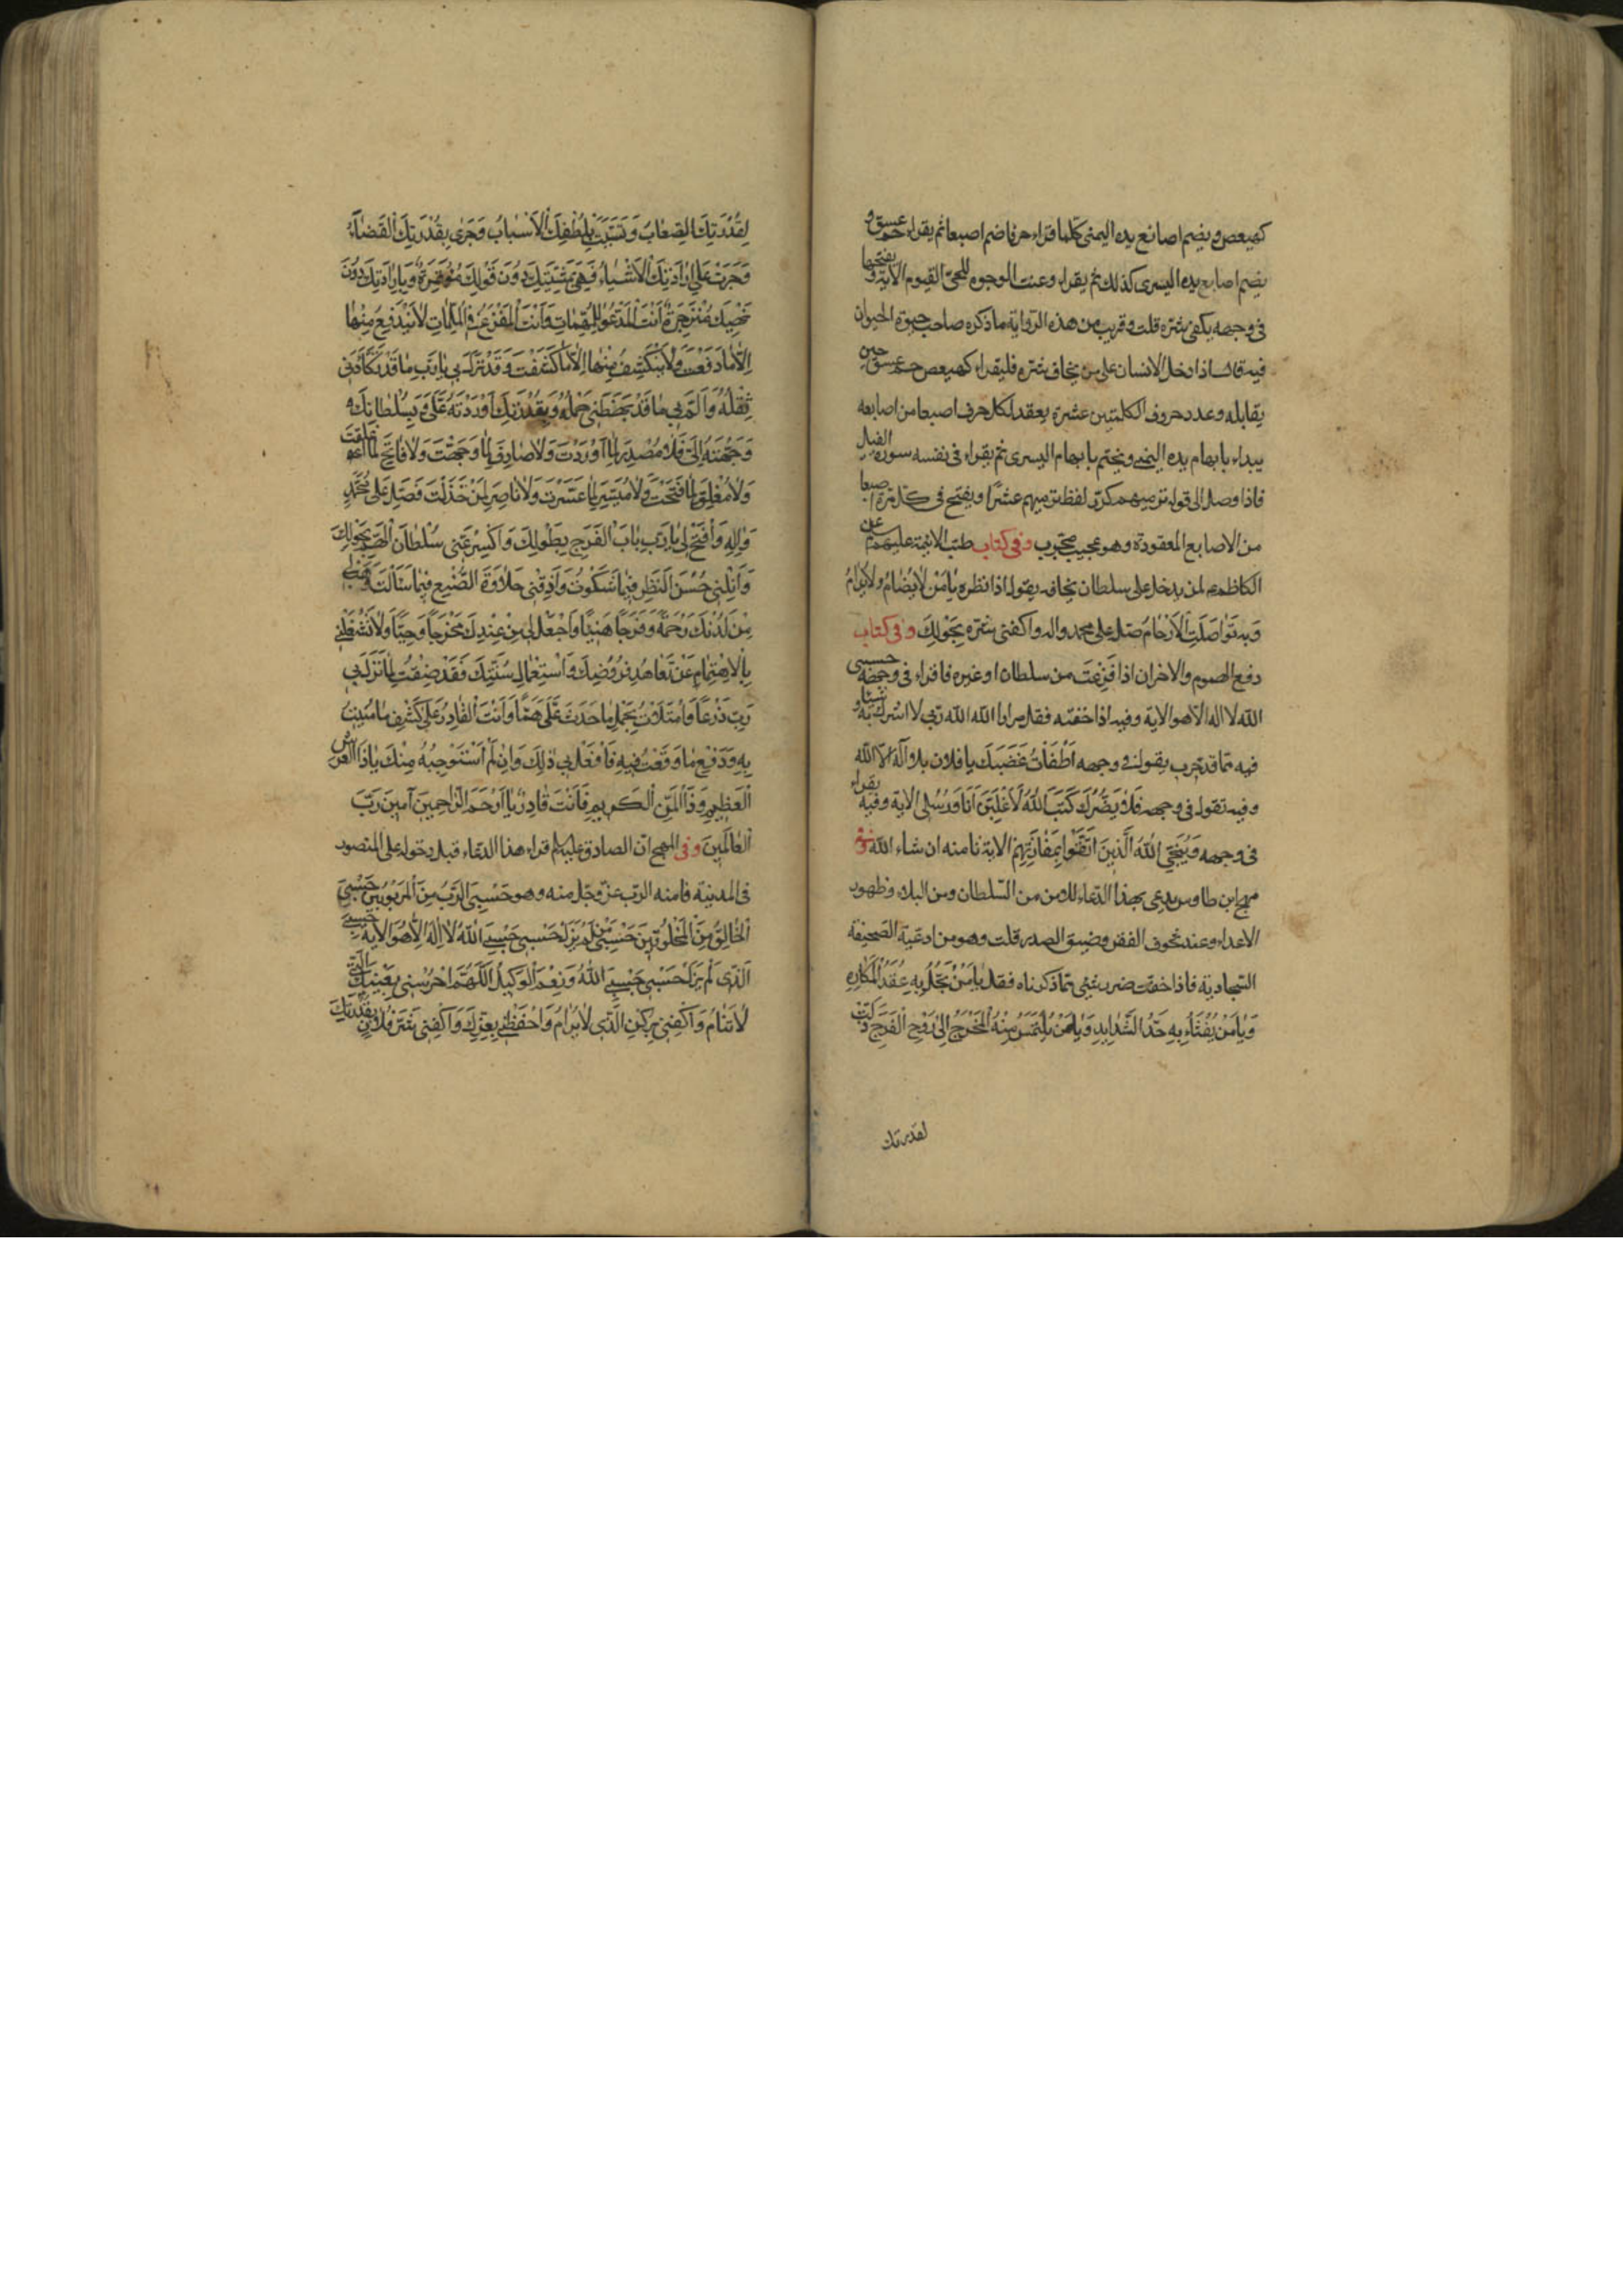 كهيعص ويضم اصابع يده اليمنى كلما قراء حرفا ضم اصبعا ثم يقراء حمعسق و
يضم اصابع يده اليسرى كذلك ثم يقراء وعنت الوجوه للحى القيوم الاية ويفتحها
فى وجهه يكفى شره قلت وقريب من هذه الرواية ما ذكره صاحب حيوة الحيوان
فيه قال اذا دخل الانسان على من يخاف شره فليقراء كهيعص حمعسق حين
يقابله وعدد حروف الكلمتين عشرة يعقد لكل حرف اصبعا من اصابعه
يبداء بابهام يده اليمنى ويختم بابهام اليسرى ثم يقراء فى نفسه سورة الفيل
فاذا وصل الى قوله ترميهم كرر لفظ ترميهم عشرا ويفتح فى كل مرة اصبعا
من الاصابع المعقودة وهو عجيب مجرب وفى كتاب طب الائمة عليهم عن
الكاظم لمن يدخل على سلطان يخافه يقول اذا نظره يٰا مَنْ لٰا يُضٰامُ وَلٰا يُرٰامُ
وَبِهِ تَوٰاصَلَتِ الْاَرْحٰامُ صَلِّ على محمد واله واكفنى شره بِحَوْلِكَ وفى كتاب
دفع الهموم والاحزان اذا فَزِعْتَ من سلطان او غيره فاقراء فى وجهه حسبى
الله لا اله الا هو الاية وفيه اذا خفته فقل مرارا الله الله ربى لا اشرك به شيئا و
فيه مما قد جرب يقول فى وجهه اَطْفَأْتُ غَضَبَكَ يا فلان بلا اله الا الله
وفيه تقول فى وجهه فلان كَتَبَ اللّٰهُ لَاَغْلِبَنَّ اَنَا وَرُسُلِى الاية وفيه يقراء
فى وجهه وَيُنَجِّى اللّٰهُ الَّذِينَ اتَّقَوْا بِمَفٰازَتِهِمْ الاية تامنه ان شاء الله وفى
مهج ابن طاوس يدعى بهذا الدعاء للامن من السلطان ومن البلاء وظهور
الاعداء وعند تخوف الفقر وضيق الصدر قلت وهو من ادعية الصحيفة
السجادية فاذا خفت ضرر شئ مما ذكرناه فقل يٰا مَنْ تُحَلُّ بِهِ عُقَدُ الْمَكٰارِهِ
وَيٰا مَنْ يُفْثَأُ بِهِ حَدُّ الشَّدٰايِدِ وَيٰا مَنْ يُلْتَمَسُ مِنْهُ الْمَخْرَجُ اِلٰى رَوْحِ الْفَرَجِ ذَلَّتْ
لقدرتك
لِقُدْرَتِكَ الصِّعٰابُ وَتَسَبَّبَتْ بِلُطْفِكَ الْاَسْبٰابُ وَجَرٰى بِقُدْرَتِكَ الْقَضٰاءُ
وَجَرَتْ عَلٰى اِرٰادَتِكَ الْاَشْيٰاءُ فَهِىَ بِمَشِيَّتِكَ دُونَ قَوْلِكَ مُؤْتَمِرَةٌ وَبِاِرٰادَتِكَ دُونَ
نَهْيِكَ مُنْزَجِرَةٌ اَنْتَ الْمَدْعُوُّ لِلْمُهِمّٰاتِ وَاَنْتَ الْمَفْزَعُ فِى الْمُلِمّٰاتِ لٰا يَنْدَفِعُ مِنْهٰا
اِلّٰا مٰا دَفَعْتَ وَلٰا يَنْكَشِفُ مِنْهٰا اِلّٰا مٰا كَشَفْتَ وَقَدْ نَزَلَ بِى يٰا رَبِّ مٰا قَدْ تَكَأَّدَنِى
ثِقْلُهُ وَاَلَمَّ بِى مٰا قَدْ بَهَظَنِى حَمْلُهُ وَبِقُدْرَتِكَ اَوْرَدْتَهُ عَلَىَّ وَبِسُلْطٰانِكَ
وَجَّهْتَهُ اِلَىَّ فَلٰا مُصْدِرَ لِمٰا اَوْرَدْتَ وَلٰا صٰارِفَ لِمٰا وَجَّهْتَ وَلٰا فٰاتِحَ لِمٰا اَغْلَقْتَ
وَلٰا مُغْلِقَ لِمٰا فَتَحْتَ وَلٰا مُيَسِّرَ لِمٰا عَسَّرْتَ وَلٰا نٰاصِرَ لِمَنْ خَذَلْتَ فَصَلِّ عَلٰى مُحَمَّدٍ
وَاٰلِهِ وَافْتَحْ لِى يٰا رَبِّ بٰابَ الْفَرَجِ بِطَوْلِكَ وَاكْسِرْ عَنِّى سُلْطٰانَ الْهَمِّ بِحَوْلِكَ
وَاَنِلْنِى حُسْنَ النَّظَرِ فِيمٰا شَكَوْتُ وَاَذِقْنِى حَلٰاوَةَ الصُّنْعِ فِيمٰا سَاَلْتُ وَهَبْ لِى
مِنْ لَدُنْكَ رَحْمَةً وَفَرَجًا هَنِيئًا وَاجْعَلْ لِى مِنْ عِنْدِكَ مَخْرَجًا وَحِيًّا وَلٰا تَشْغَلْنِى
بِالْاِهْتِمٰامِ عَنْ تَعٰاهُدِ فُرُوضِكَ وَاسْتِعْمٰالِ سُنَّتِكَ فَقَدْ ضِقْتُ لِمٰا نَزَلَ بِى
رَبِّ ذَرْعًا وَامْتَلَاْتُ بِحَمْلِ مٰا حَدَثَ عَلَىَّ هَمًّا وَاَنْتَ الْقٰادِرُ عَلٰى كَشْفِ مٰا مُنِيتُ
بِهِ وَدَفْعِ مٰا وَقَعْتُ فِيهِ فَافْعَلْ بِى ذٰلِكَ وَاِنْ لَمْ اَسْتَوْجِبْهُ مِنْكَ يٰا ذَا الْعَرْشِ
الْعَظِيمِ وَذَا الْمَنِّ الْكَرِيمِ فَاَنْتَ قٰادِرٌ يٰا اَرْحَمَ الرّٰاحِمِينَ آمِينَ رَبَّ
الْعٰالَمِينَ وفى المهج ان الصادق عليه السلم قراء هذا الدعاء قبل دخوله على المنصور
فى المدينة فامنه الرب عز وجل منه وهو حَسْبِىَ الرَّبُّ مِنَ الْمَرْبُوبِينَ حَسْبِىَ
الْخٰالِقُ مِنَ الْمَخْلُوقِينَ حَسْبِى مَنْ لَمْ يَزَلْ حَسْبِى حَسْبِىَ اللّٰهُ لٰا اِلٰهَ اِلّٰا هُوَ الاية حَسْبِىَ
الَّذِى لَمْ يَزَلْ حَسْبِى حَسْبِىَ اللّٰهُ وَنِعْمَ الْوَكِيلُ اَللّٰهُمَّ احْرُسْنِى بِعَيْنِكَ الَّتِى
لٰا تَنٰامُ وَاكْفِنِى بِرُكْنِكَ الَّذِى لٰا يُرٰامُ وَاحْفَظْنِى بِعِزِّكَ وَاكْفِنِى شَرَّ فُلٰانٍ بِقُدْرَتِكَ